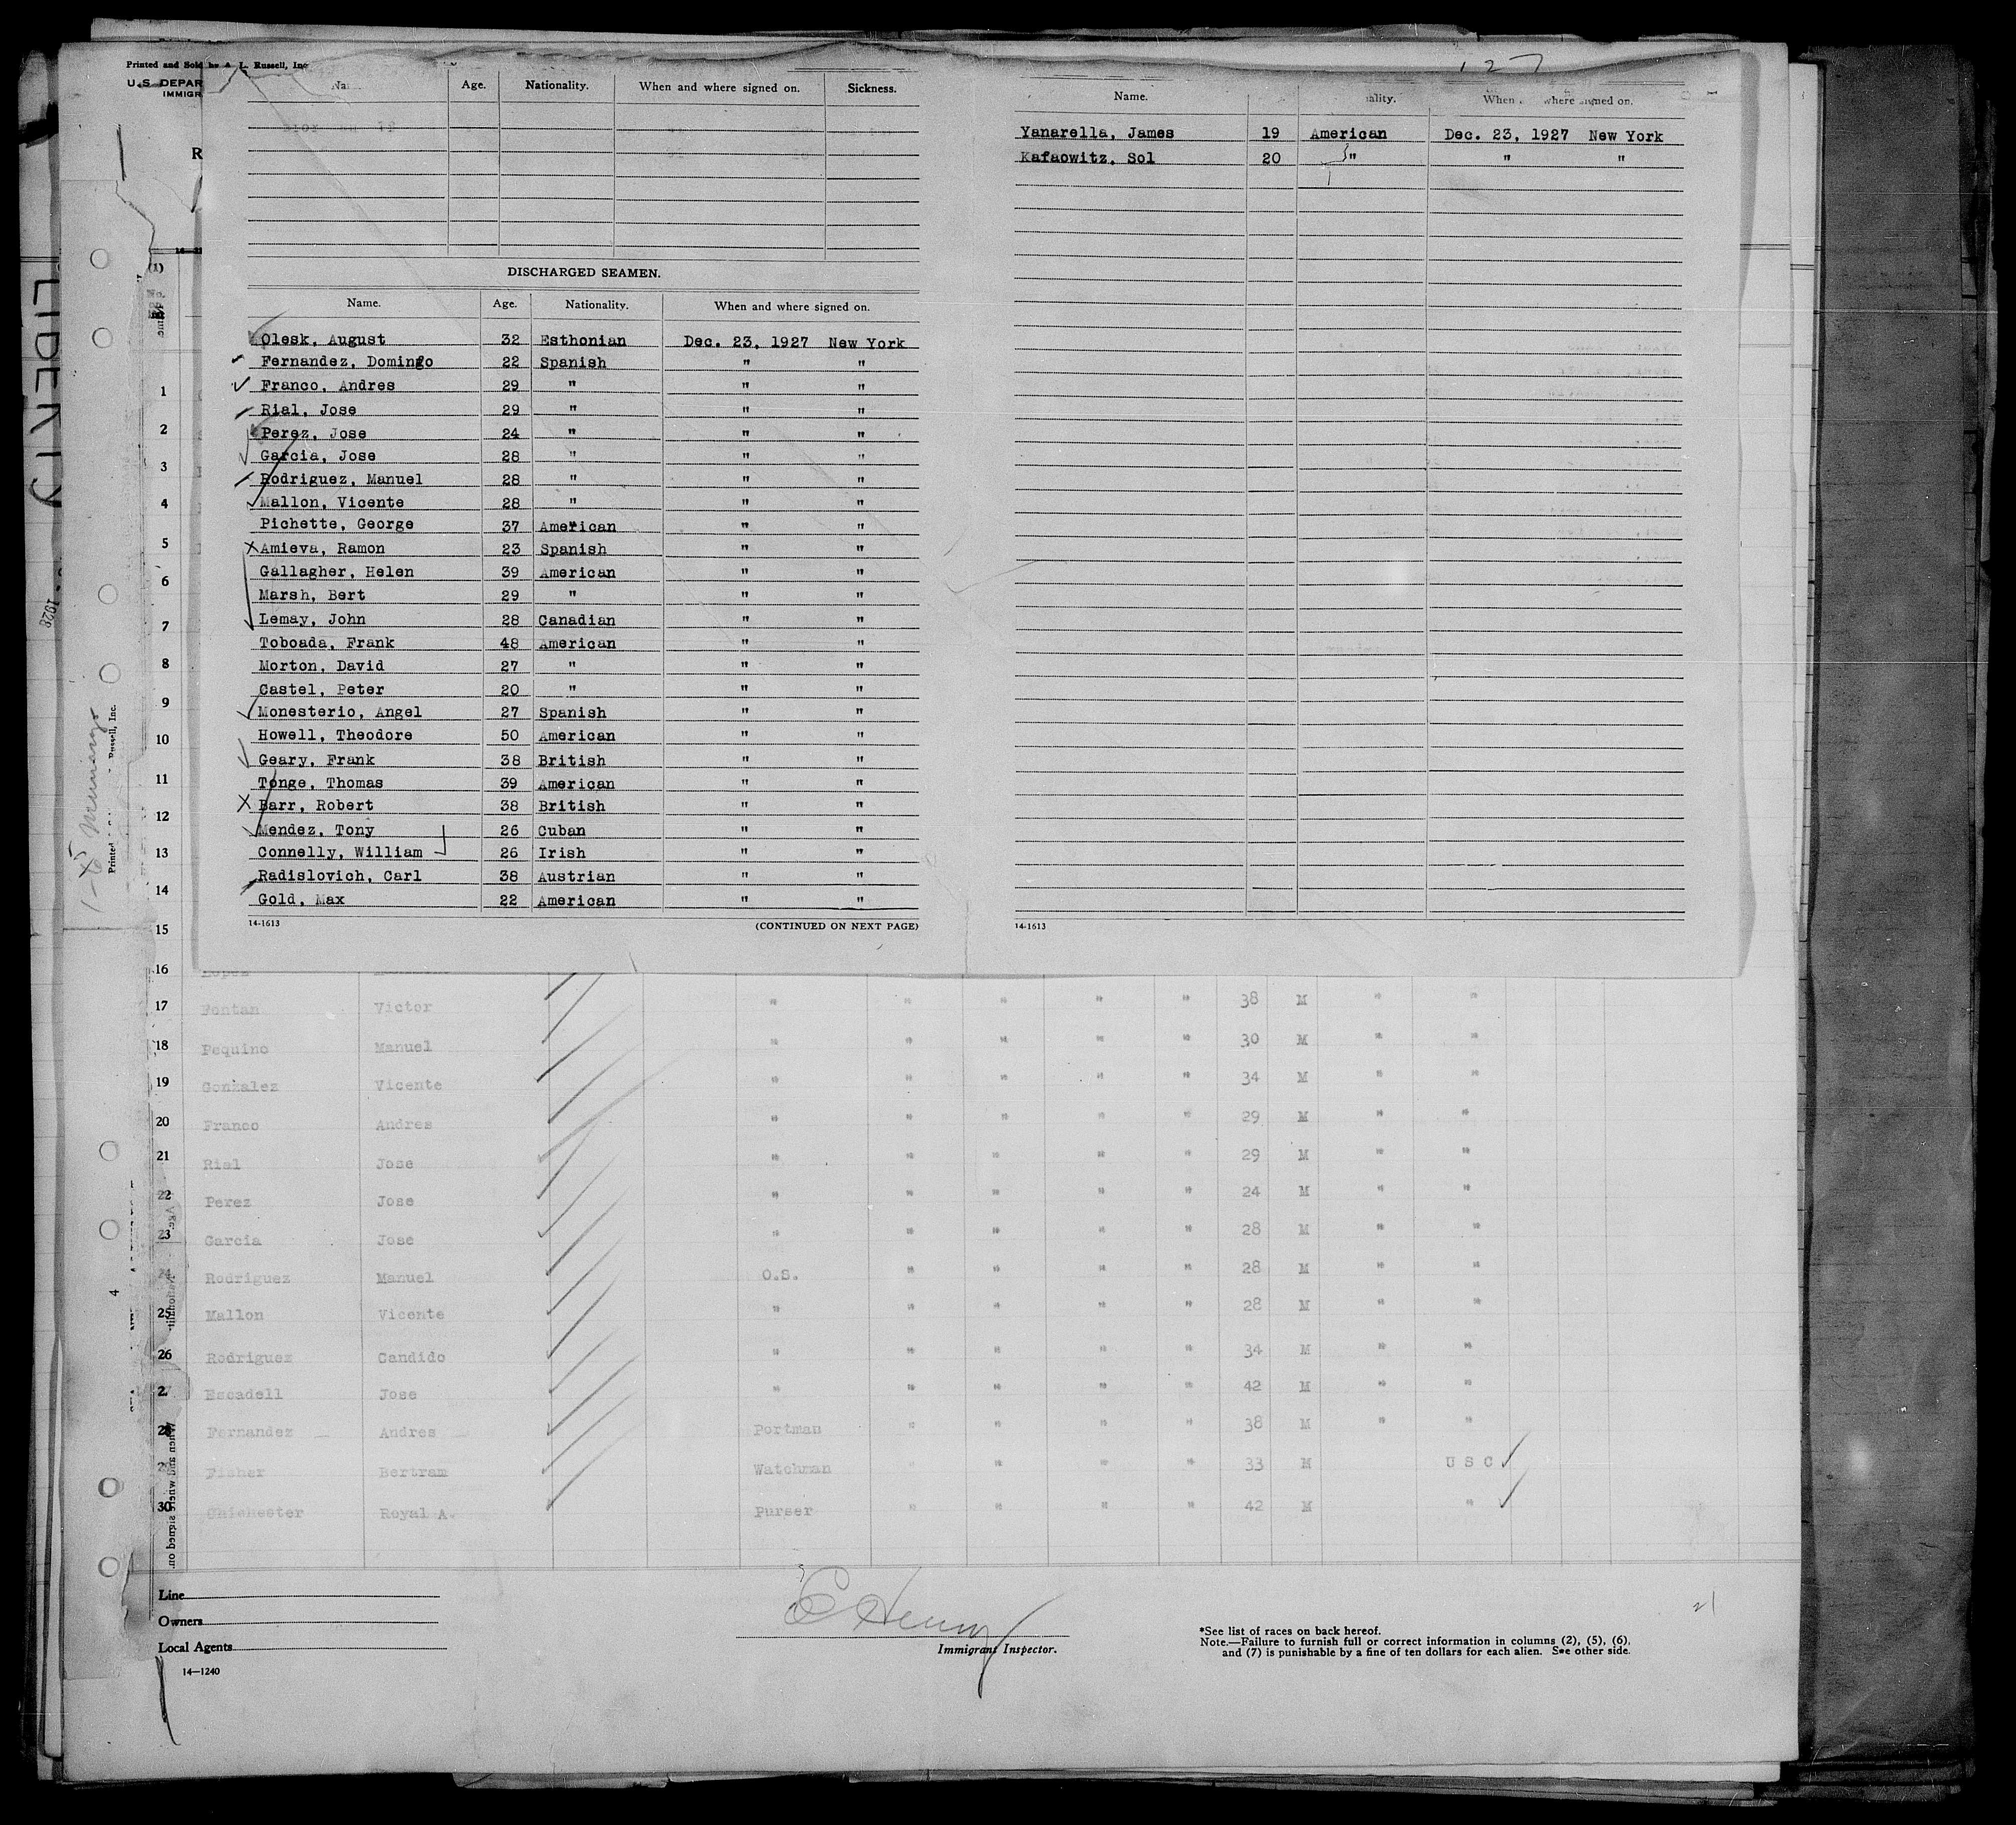 Printed and Sold by A. L. Russell, Inc
U.S. DEPAR
IMMIGR
127
Age. Nationality. When and where signed on. Sickness.
DISCHARGED SEAMEN.
Name. Age. Nationality. When and where signed on.
Olesk, August 32 Esthonian Dec. 23, 1927 New York
Fernandez, Domingo 22 Spanish " "
Franco, Andres 29 " " "
Rial, Jose 29 " " "
Perez, Jose 24 " " "
Garcia, Jose 28 " " "
Rodriguez, Manuel 28 " " "
Mallon, Vicente 28 " " "
Pichette, George 37 American " "
Amieva, Ramon 23 Spanish " "
Gallagher, Helen 39 American " "
Marsh, Bert 29 " " "
Lemay, John 28 Canadian " "
Toboada, Frank 48 American " "
Morton, David 27 " " "
Castel, Peter 20 " " "
Monesterio, Angel 27 Spanish " "
Howell, Theodore 50 American " "
Geary, Frank 38 British " "
Tonge, Thomas 39 American " "
Barr, Robert 38 British " "
Mendez, Tony 26 Cuban " "
Connelly, William 26 Irish " "
Radislovich, Carl 38 Austrian " "
Gold, Max 22 American " "
14-1613 (CONTINUED ON NEXT PAGE)
Name. ality. When where signed on.
Yanarella, James 19 American Dec. 23, 1927 New York
Kafaowitz, Sol 20 " " "
14-1613
LIBERTY
1928
(1)
1
2
3
4
5
6
7
8
9
10
11
12
13
14
15
16 Lopez
17 Fontan Victor " " " " " 38 M " "
18 Pequino Manuel " " " " " 30 M " "
19 Gonzalez Vicente " " " " " 34 M " "
20 Franco Andres " " " " " 29 M " "
21 Rial Jose " " " " " 29 M " "
22 Perez Jose " " " " " 24 M " "
23 Garcia Jose " " " " " 28 M " "
24 Rodriguez Manuel O.S. " " " " 28 M " "
25 Mallon Vicente " " " " " 28 M " "
26 Rodriguez Candido " " " " " 34 M " "
27 Escadell Jose " " " " " 42 M " "
28 Fernandez Andres Portman " " " " 38 M " "
29 Fisher Bertram Watchman " " " " 33 M U S C
30 Chichester Royal A. Purser " " " " 42 M "
4
Line
Owners
Local Agents
14—1240
E Henry
Immigrant Inspector.
*See list of races on back hereof.
Note.—Failure to furnish full or correct information in columns (2), (5), (6),
and (7) is punishable by a fine of ten dollars for each alien. See other side.
21